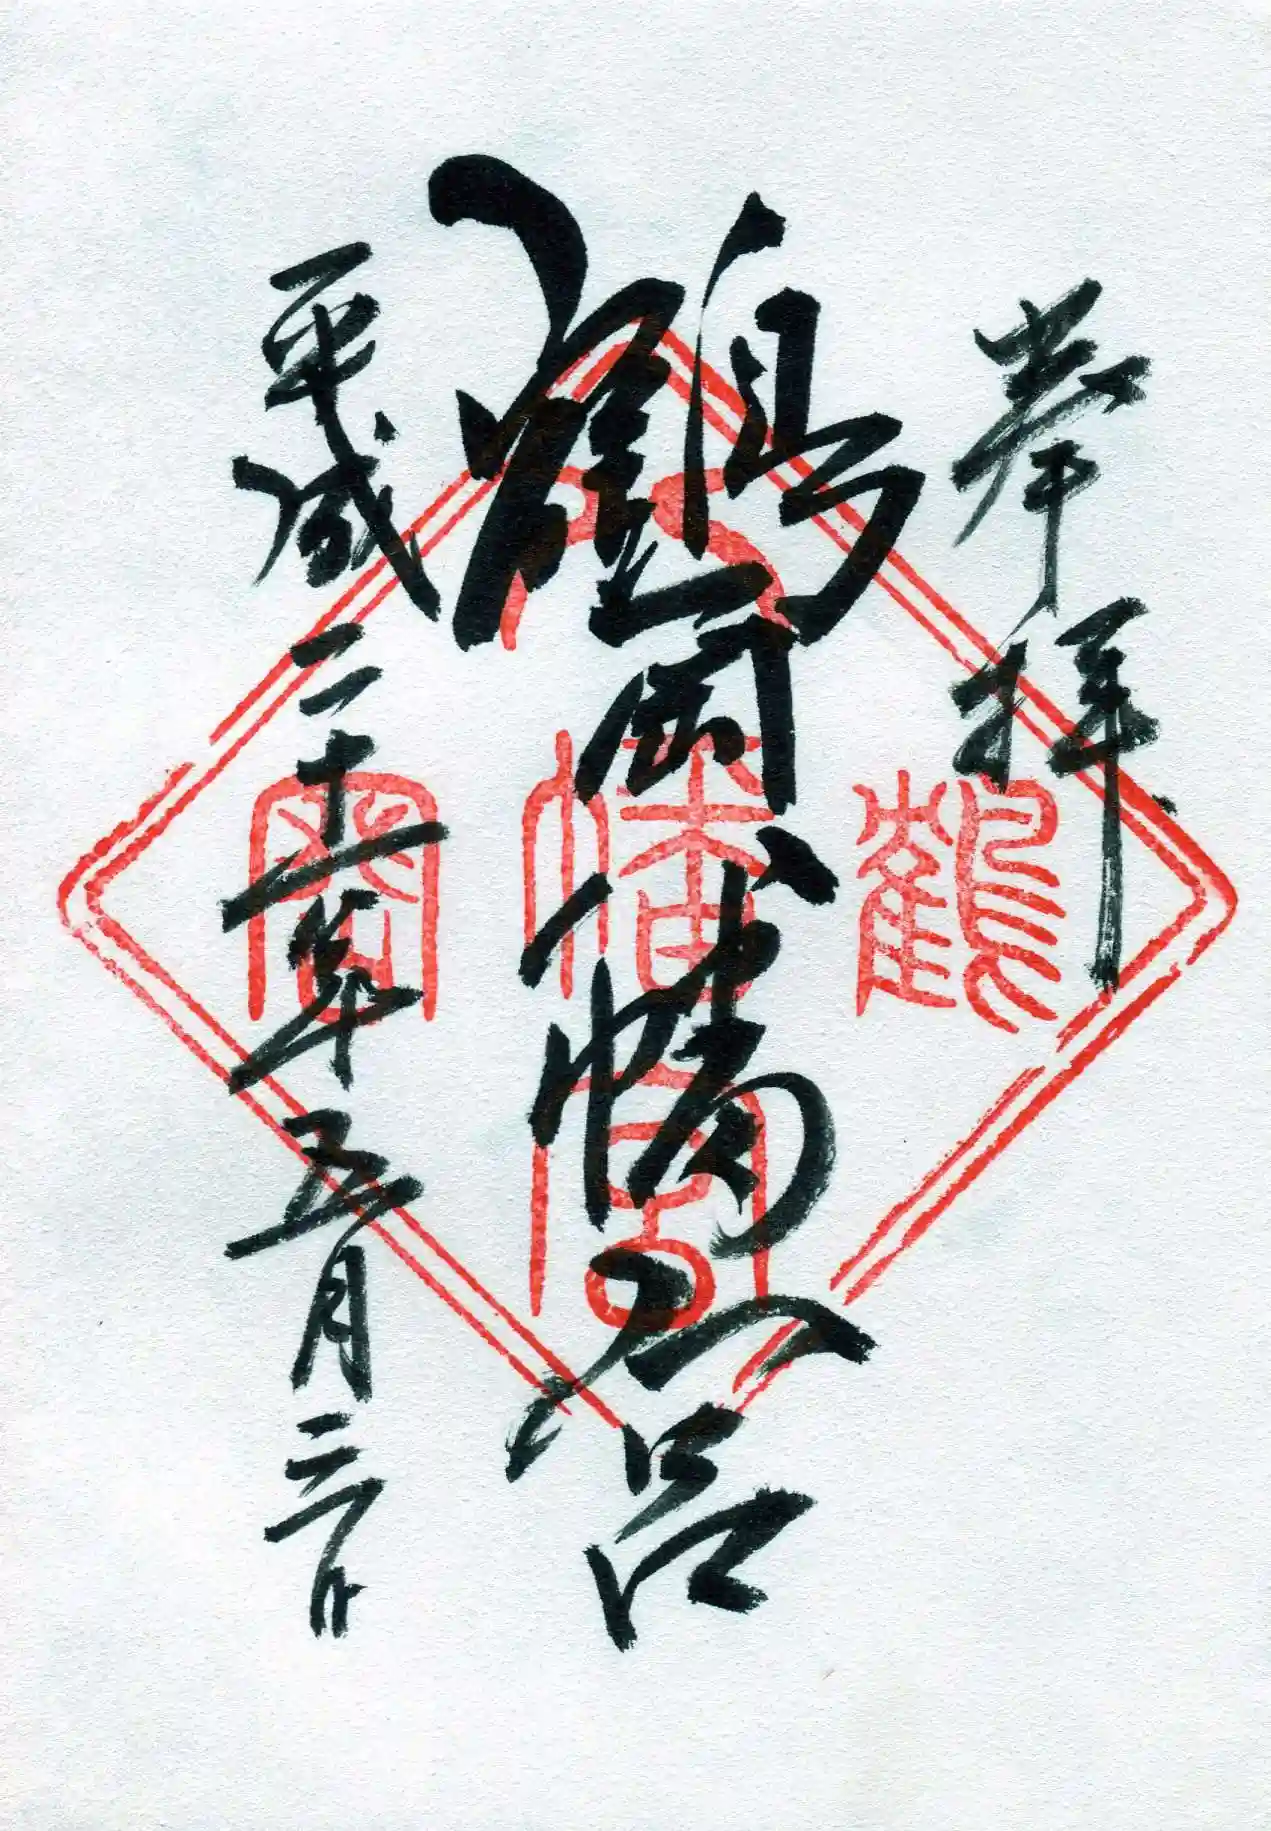 奉拝
鶴岡八幡宮
平成二十一年五月三日
鶴岡八幡宮